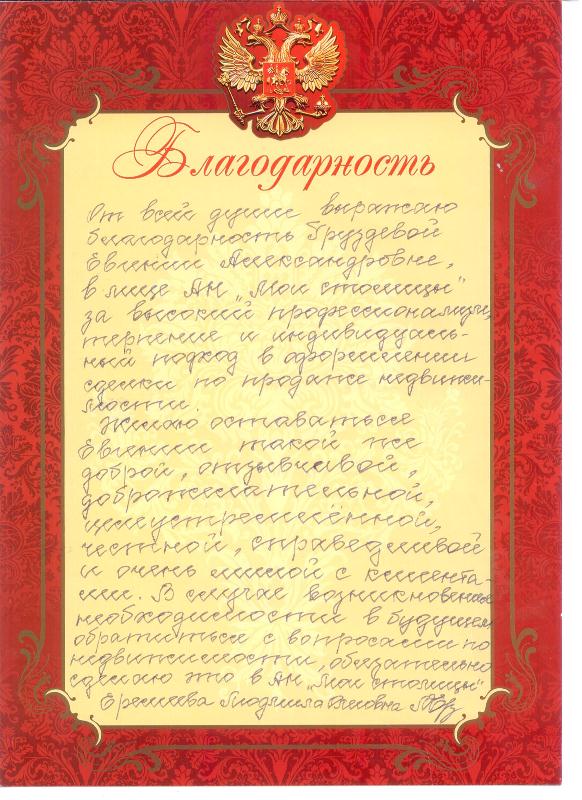 Благодарность
От всей души выражаю
благодарность Груздевой
Евгении Александровне,
в лице АН „Мои столицы"
за высокий профессионализм,
терпение и индивидуаль-
ный подход в оформлении
сделки по продаже недвижи-
мости.
Желаю оставаться
Евгении такой же
доброй, отзывчивой,
доброжелательной,
целеустремлённой,
честной, справедливой
и очень милой с клиента-
ми. В случае возникновения
необходимости в будущем
обратиться с вопросами по
недвижимости, обязательно
сделаю это в АН „Мои столицы"
Людмила